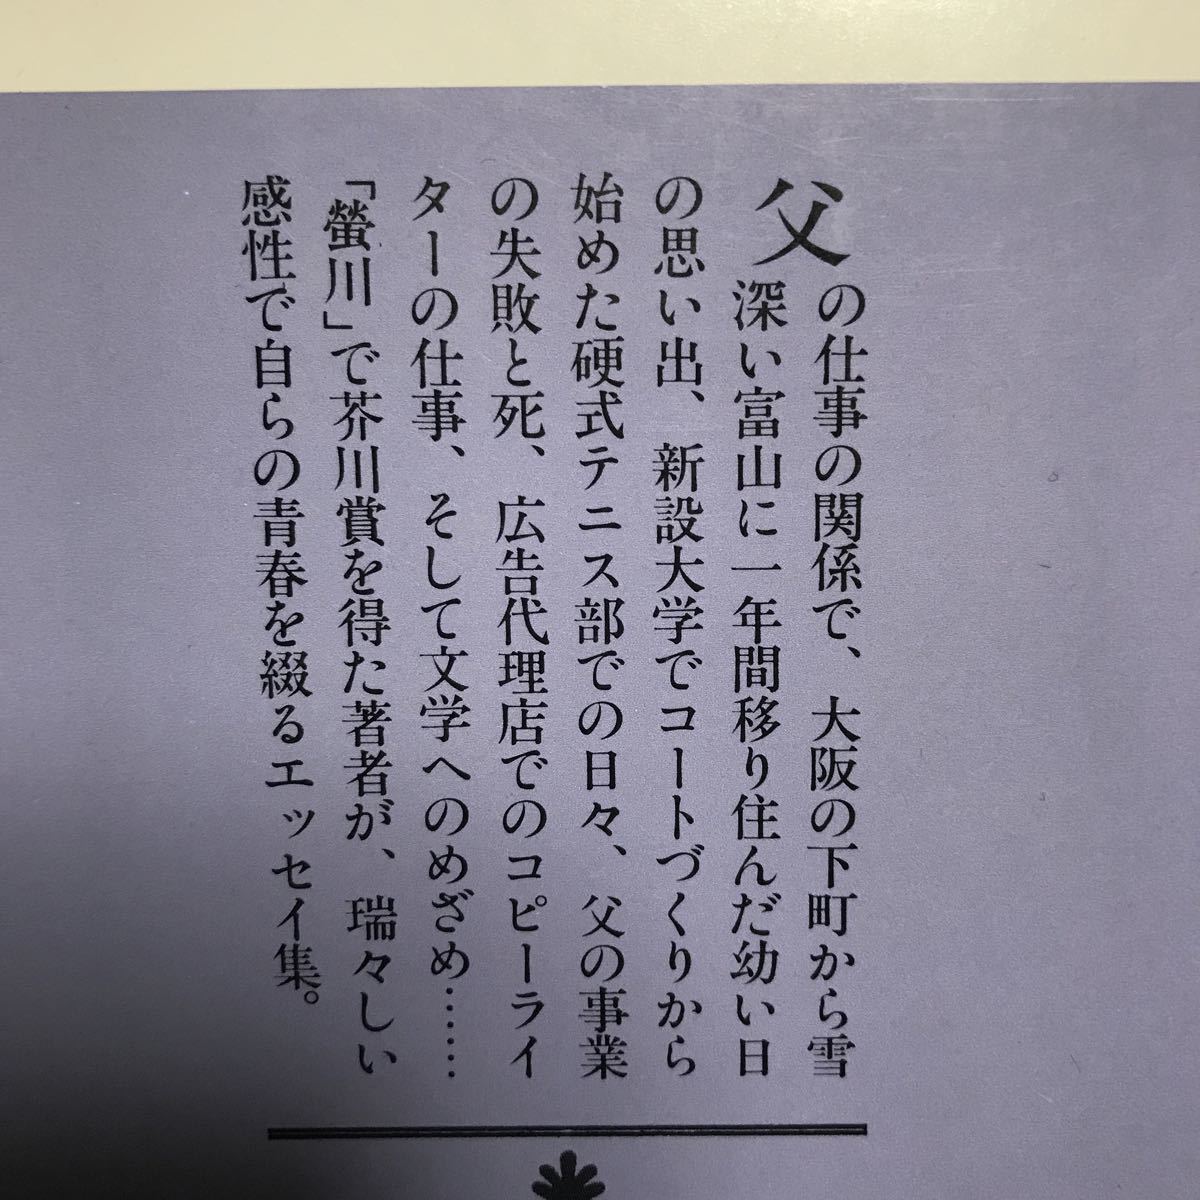 父の仕事の関係で、大阪の下町から雪
深い富山に一年間移り住んだ幼い日
の思い出、新設大学でコートづくりから
始めた硬式テニス部での日々、父の事業
の失敗と死、広告代理店でのコピーライ
ターの仕事、そして文学へのめざめ……
「螢川」で芥川賞を得た著者が、瑞々しい
感性で自らの青春を綴るエッセイ集。